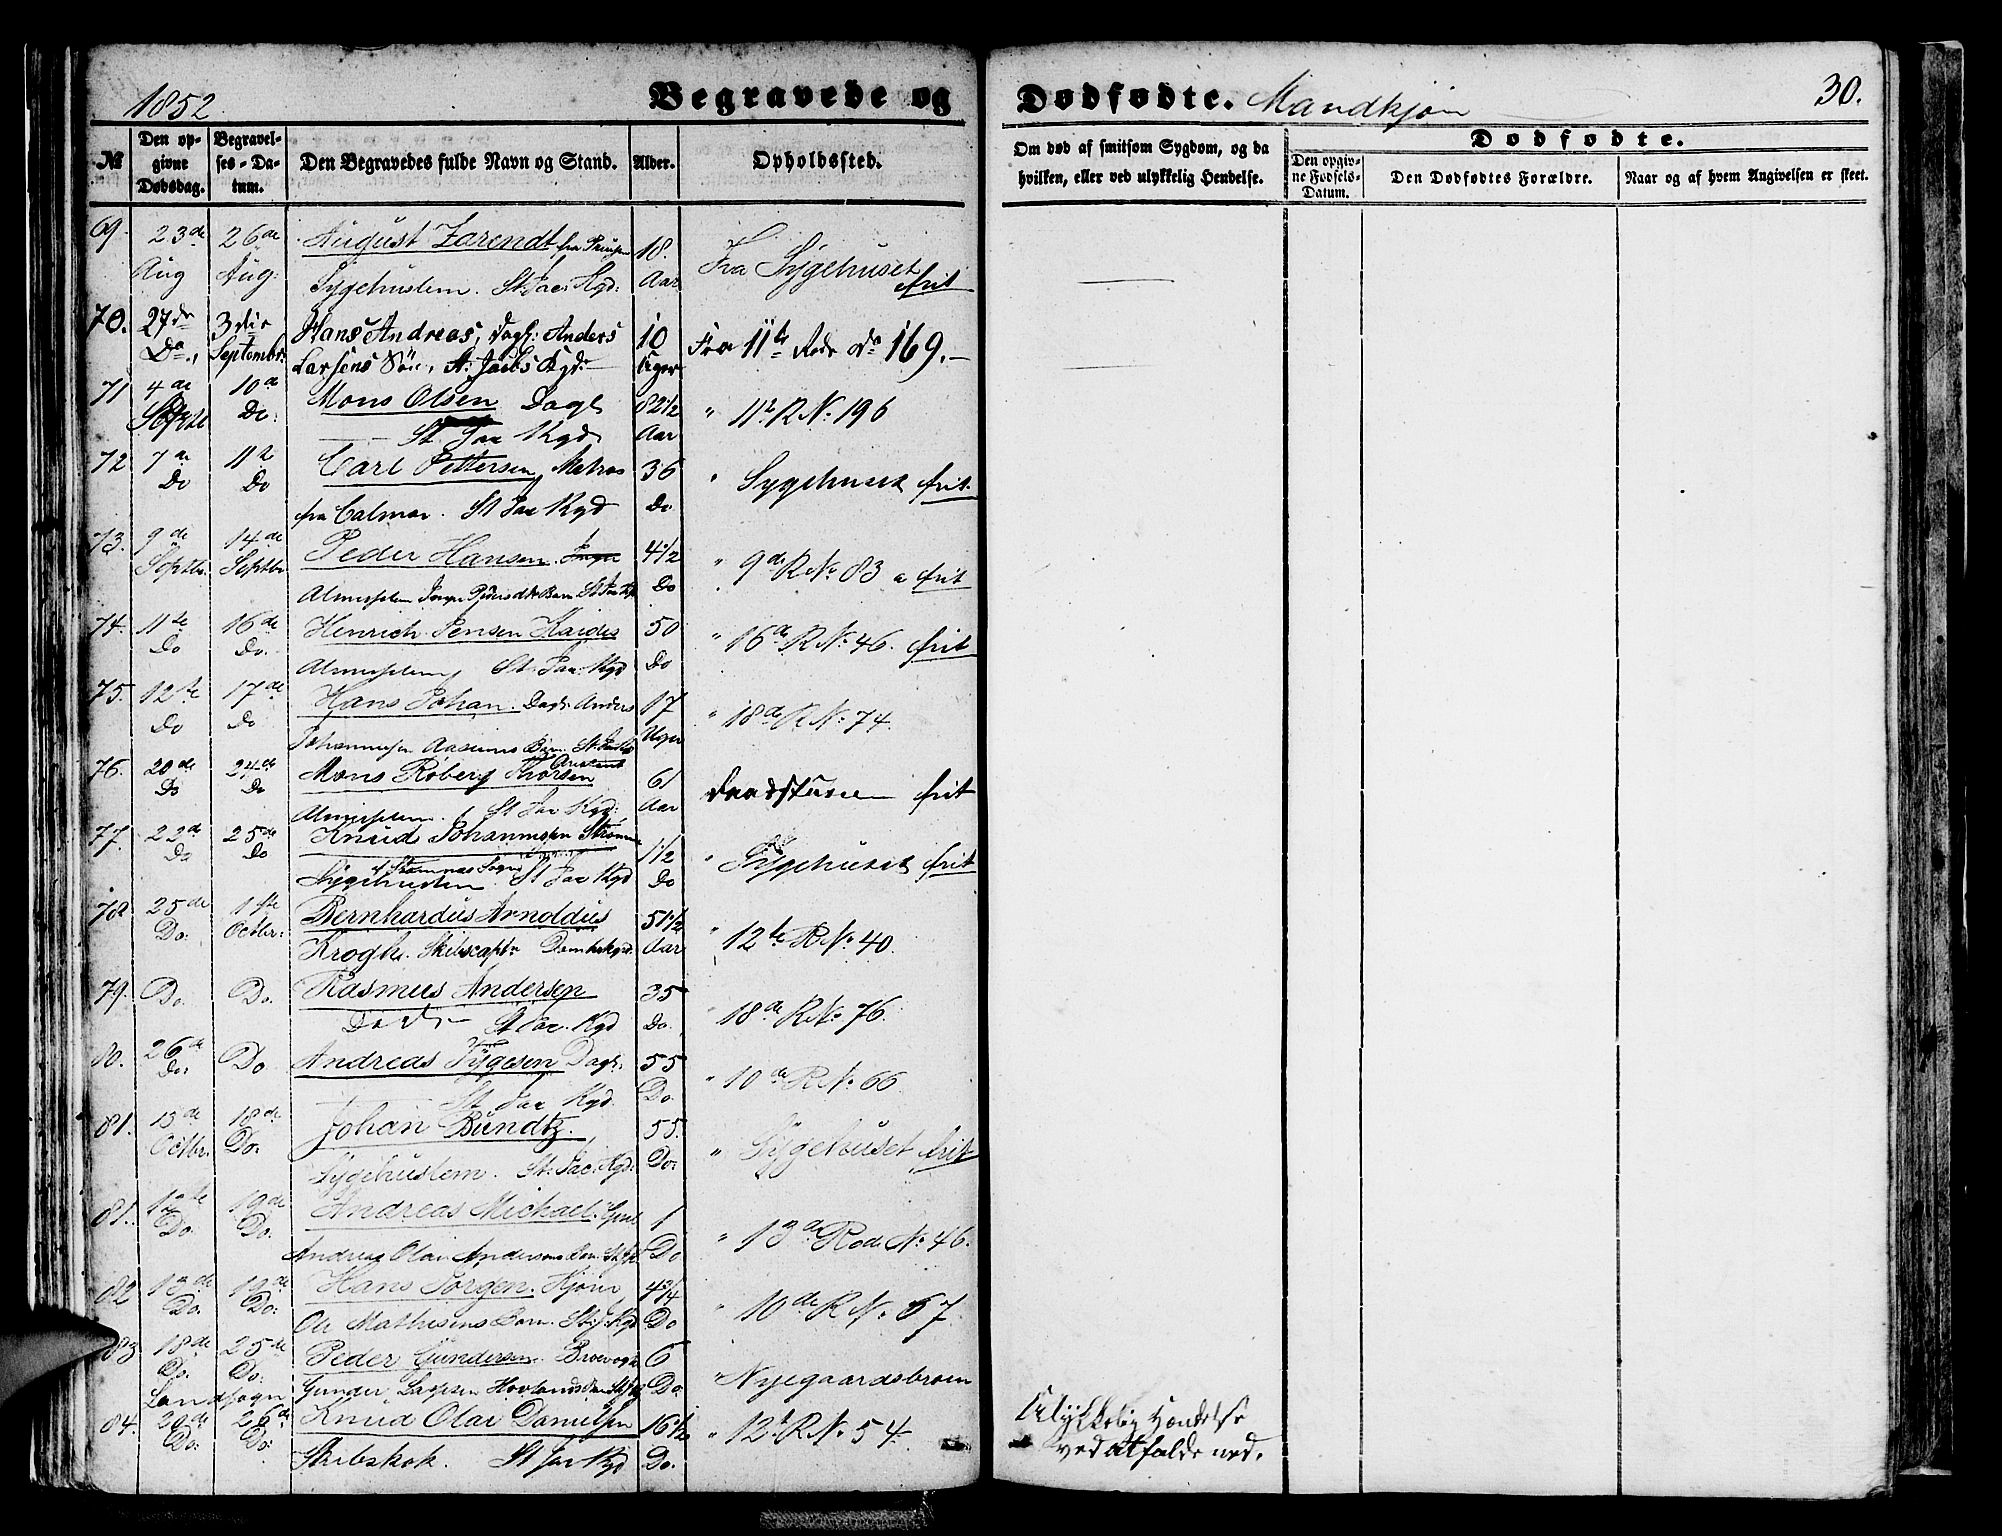 1852.
Begravede og
Dødfødte. Mandkjøn
30.
№
Den opgivne Dødsdag.
Begravelses-Datum.
Den Begravedes fulde Navn og Stand.
Alder.
Opholdssted.
Om død af smitsom Sygdom, og da hvilken, eller ved ulykkelig Hendelse.
Dødfødte.
Den opgivne Fødsels-Datum.
Den Dødfødtes Forældre.
Naar og af hvem Angivelsen er skeet.
69. 23de 26de August Zarendt fra 18. Fra Sygehuset
Aug Aug: Sygehuslem. St. Jac: Kgd: Aar frit
70. 27de 3die Hans Andreas, Dagl: Anders 10 Fra 11te Rode No 169.
Do., Septembr: Larsens Søn, St. Jacobs Kgd: Uger
71 4de 10de Mons Olsen Dagl 82 1/2 " 11te R No. 196
Septbr Do: St Jac Kgd Aar
72 7de 11te Carl Pettersen, Matros 36 " Sygehuset frit
Do Do fra Calmar. St Jac Kgd Do
73. 9de 14de Peder Hansen. 4 1/2 " 9de R No. 83 a frit
Septbr. Septbr Almisselem Barn St Jac Kgd Do
74. 11te 16de Henrich Jensen 50 " 16de R No. 46. frit
Do Do. Almisselem St. Jac. Kgd Do
75. 12te 17de Hans Johan. Dagl. Anders 17 " 18de R No. 74.
Do Do Johannesen Aasums Barn. St. Jacobs Uger
76. 20de 24de Mons Roberg Thorsen 61 frit
Do Do Almisselem. St Jac Kgd: Aar
77. 22de 25de Knud Johannesen 1 1/2 " Sygehuset frit
Do Do Sygehuslem. St Jac Kgd Do
78 25de 1ste Bernhardus Arnoldus 51 1/2 " 12te R No. 40.
Do. Octbr: Krogh. Skibscaptn Domkkgd. Aar
79. Do. Do. Rasmus Andersen 35 " 18de R No. 76.
Dagl St Jac. Kgd Do.
80. 26de Do Andreas Tygesen Dagl. 55 " 10de R No. 66
Do. St Jac Kgd. Do.
81. 13de 18de Johan Bundtz. 55. " Sygehuset frit
Octbr. Do. Sygehuslem. St. Jac: Kgd: Do:
81. 12te 19de Andreas Michael. 1 " 13de Rode No. 46.
Do. Do. Andreas Olai Andersens Barn. Do
82 13de 19de Hans Jörgen. 4 3/4 " 10de R No. 67
Do. Do. Ole Mathisens Barn. St. J. Kgd Do
83 18de 25de Peder Gundersen. 6 " Nyegaardsbroen
Do. Do. Gunder Do.
Landsogn
84. 20de 26de Knud Olai Danielsen 16 1/2 " 12te R No 54. Ulykkelig Hændelse
Do. Do. Skibskok. St Jac Kgd Do. ved at falde ned.